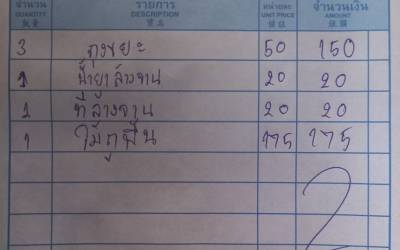 จำนวน รายการ หน่วยละ จำนวนเงิน
QUANTITY DESCRIPTION UNIT PRICE AMOUNT
3 ถุงขยะ 50 150
1 น้ำยาล้างจาน 20 20
1 ที่ล้างจาน 20 20
1 ไม้ถูพื้น 175 175